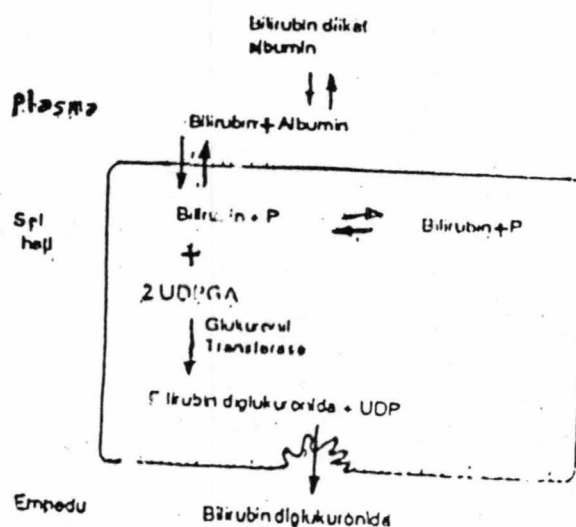 Bilirubin diikat
albumin
Plasma
Bilirubin + Albumin
Sel
hati
Bilirubin + P
Bilirubin + P
+
2 UDPGA
Glukuronil
Transferase
Bilirubin diglukuronida + UDP
Empedu
Bilirubin diglukuronida